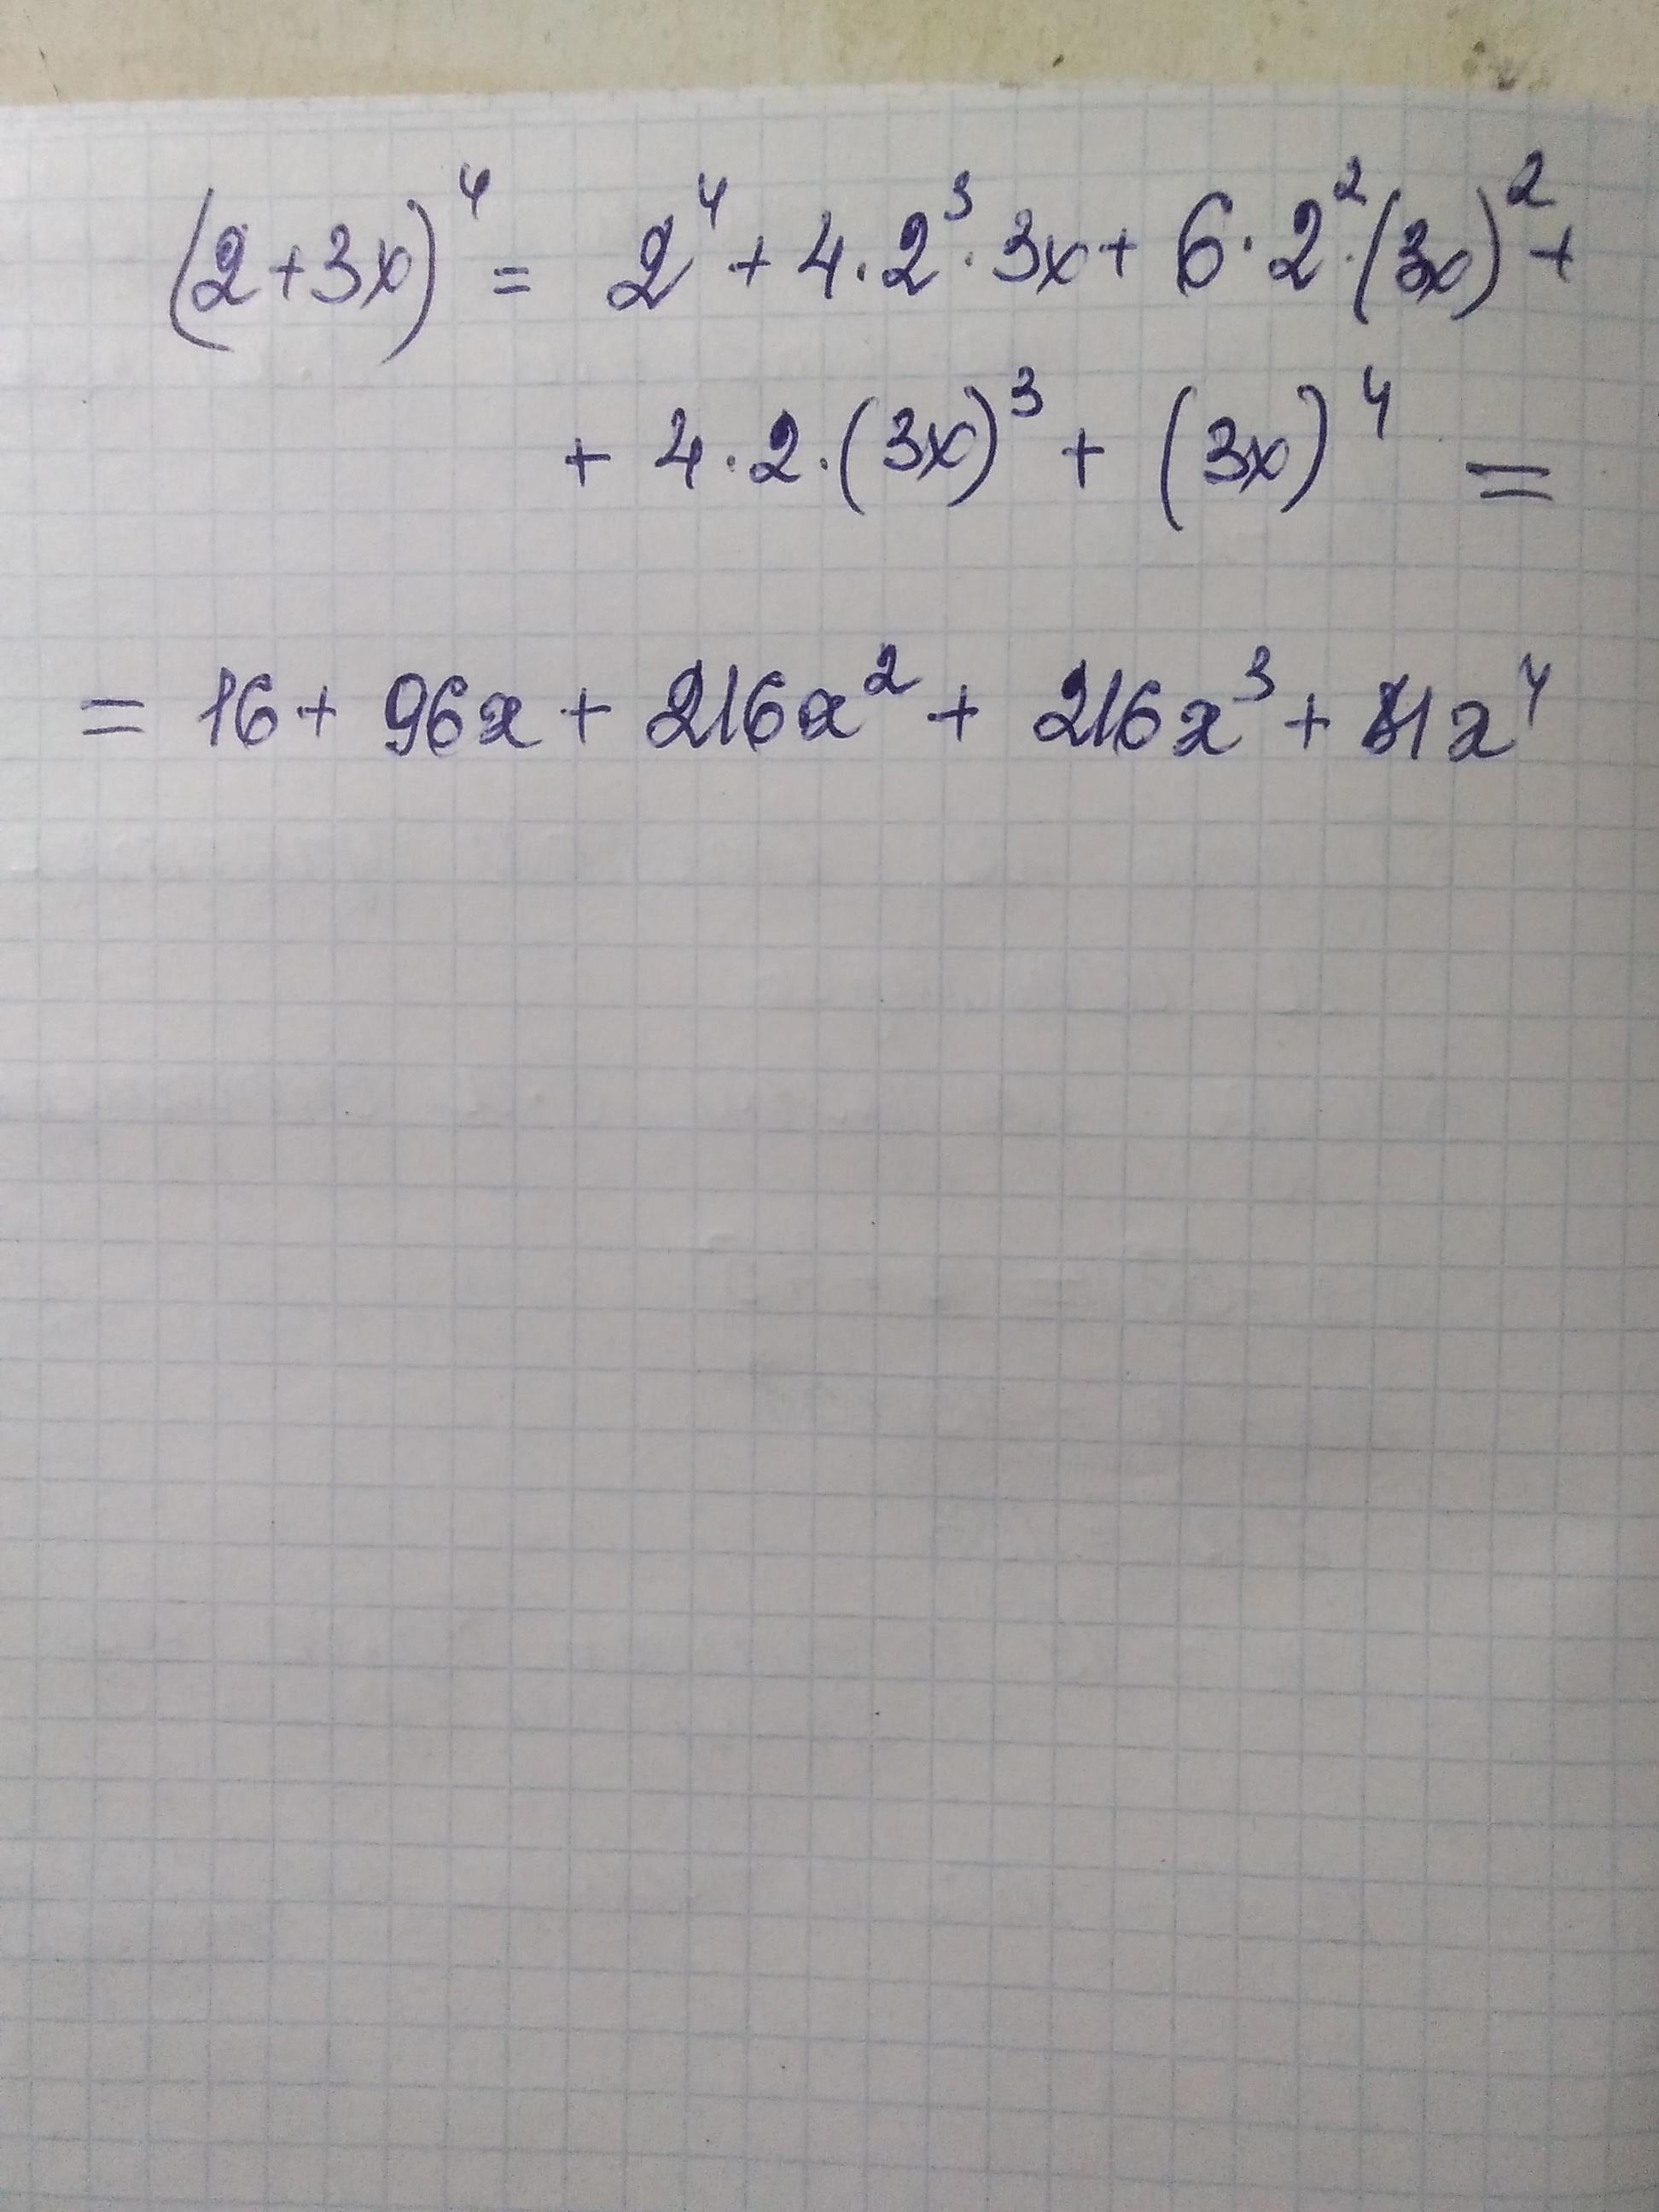 (2+3x)⁴ = 2⁴ + 4·2³·3x + 6·2²·(3x)² +
+ 4·2·(3x)³ + (3x)⁴ =
= 16 + 96x + 216x² + 216x³ + 81x⁴